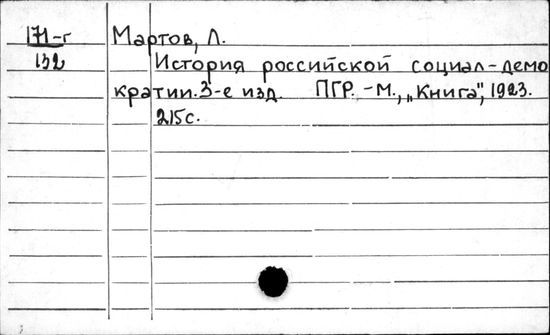 171-г
132
Мартов, Л.
История российской социал-демо
кратии. 3-е изд. ПГР. -М., „Книга", 1923.
215с.